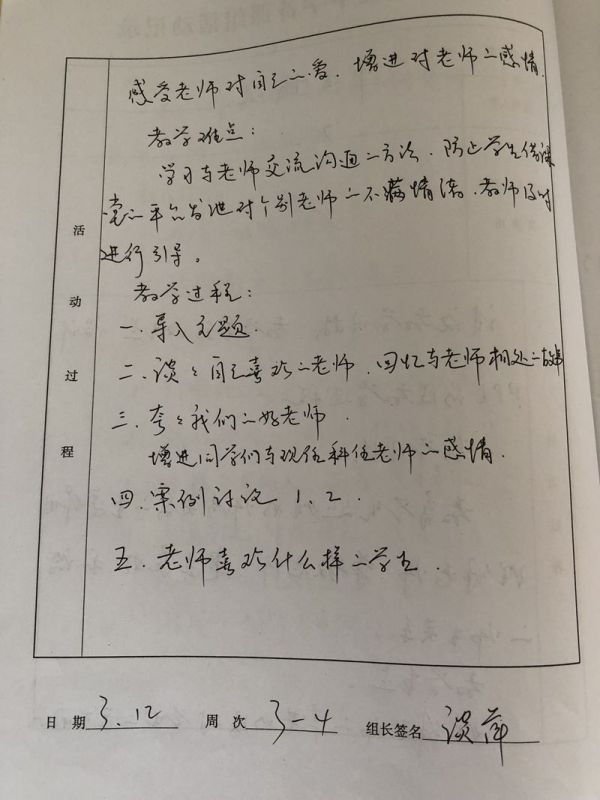 感受老师对自己的爱，增进对老师的感情
教学难点：
学习与老师交流沟通的方法，防止学生借课
堂的平台发泄对个别老师的不满情绪，教师及时
进行引导。
教学过程：
一．导入主题．
二．谈谈自己喜欢的老师，回忆与老师相处的故事
三．夸夸我们的好老师．
增进同学们与现任科任老师的感情．
四．案例讨论 1、2．
五．老师喜欢什么样的学生．
活动过程
日期 3.12 周次 3-4 组长签名 谈萍